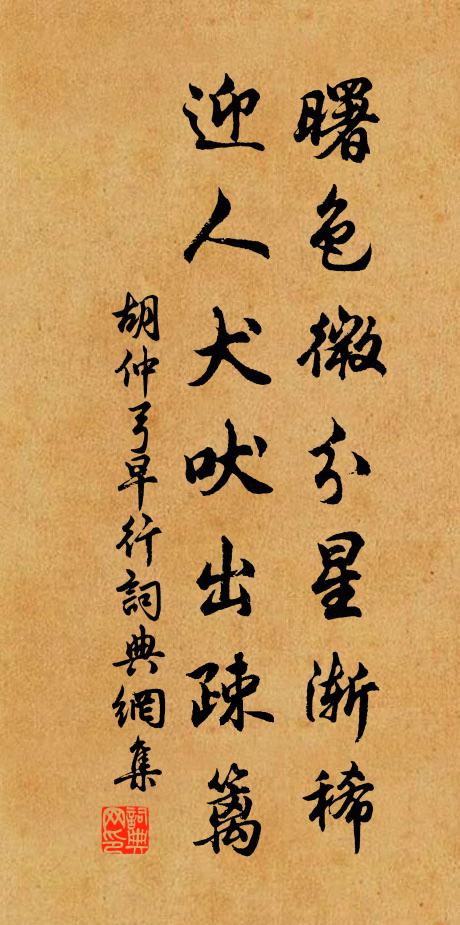 曙色微分星漸稀
迎人犬吠出疎籬
胡仲弓早行詞典網集
詞典网印